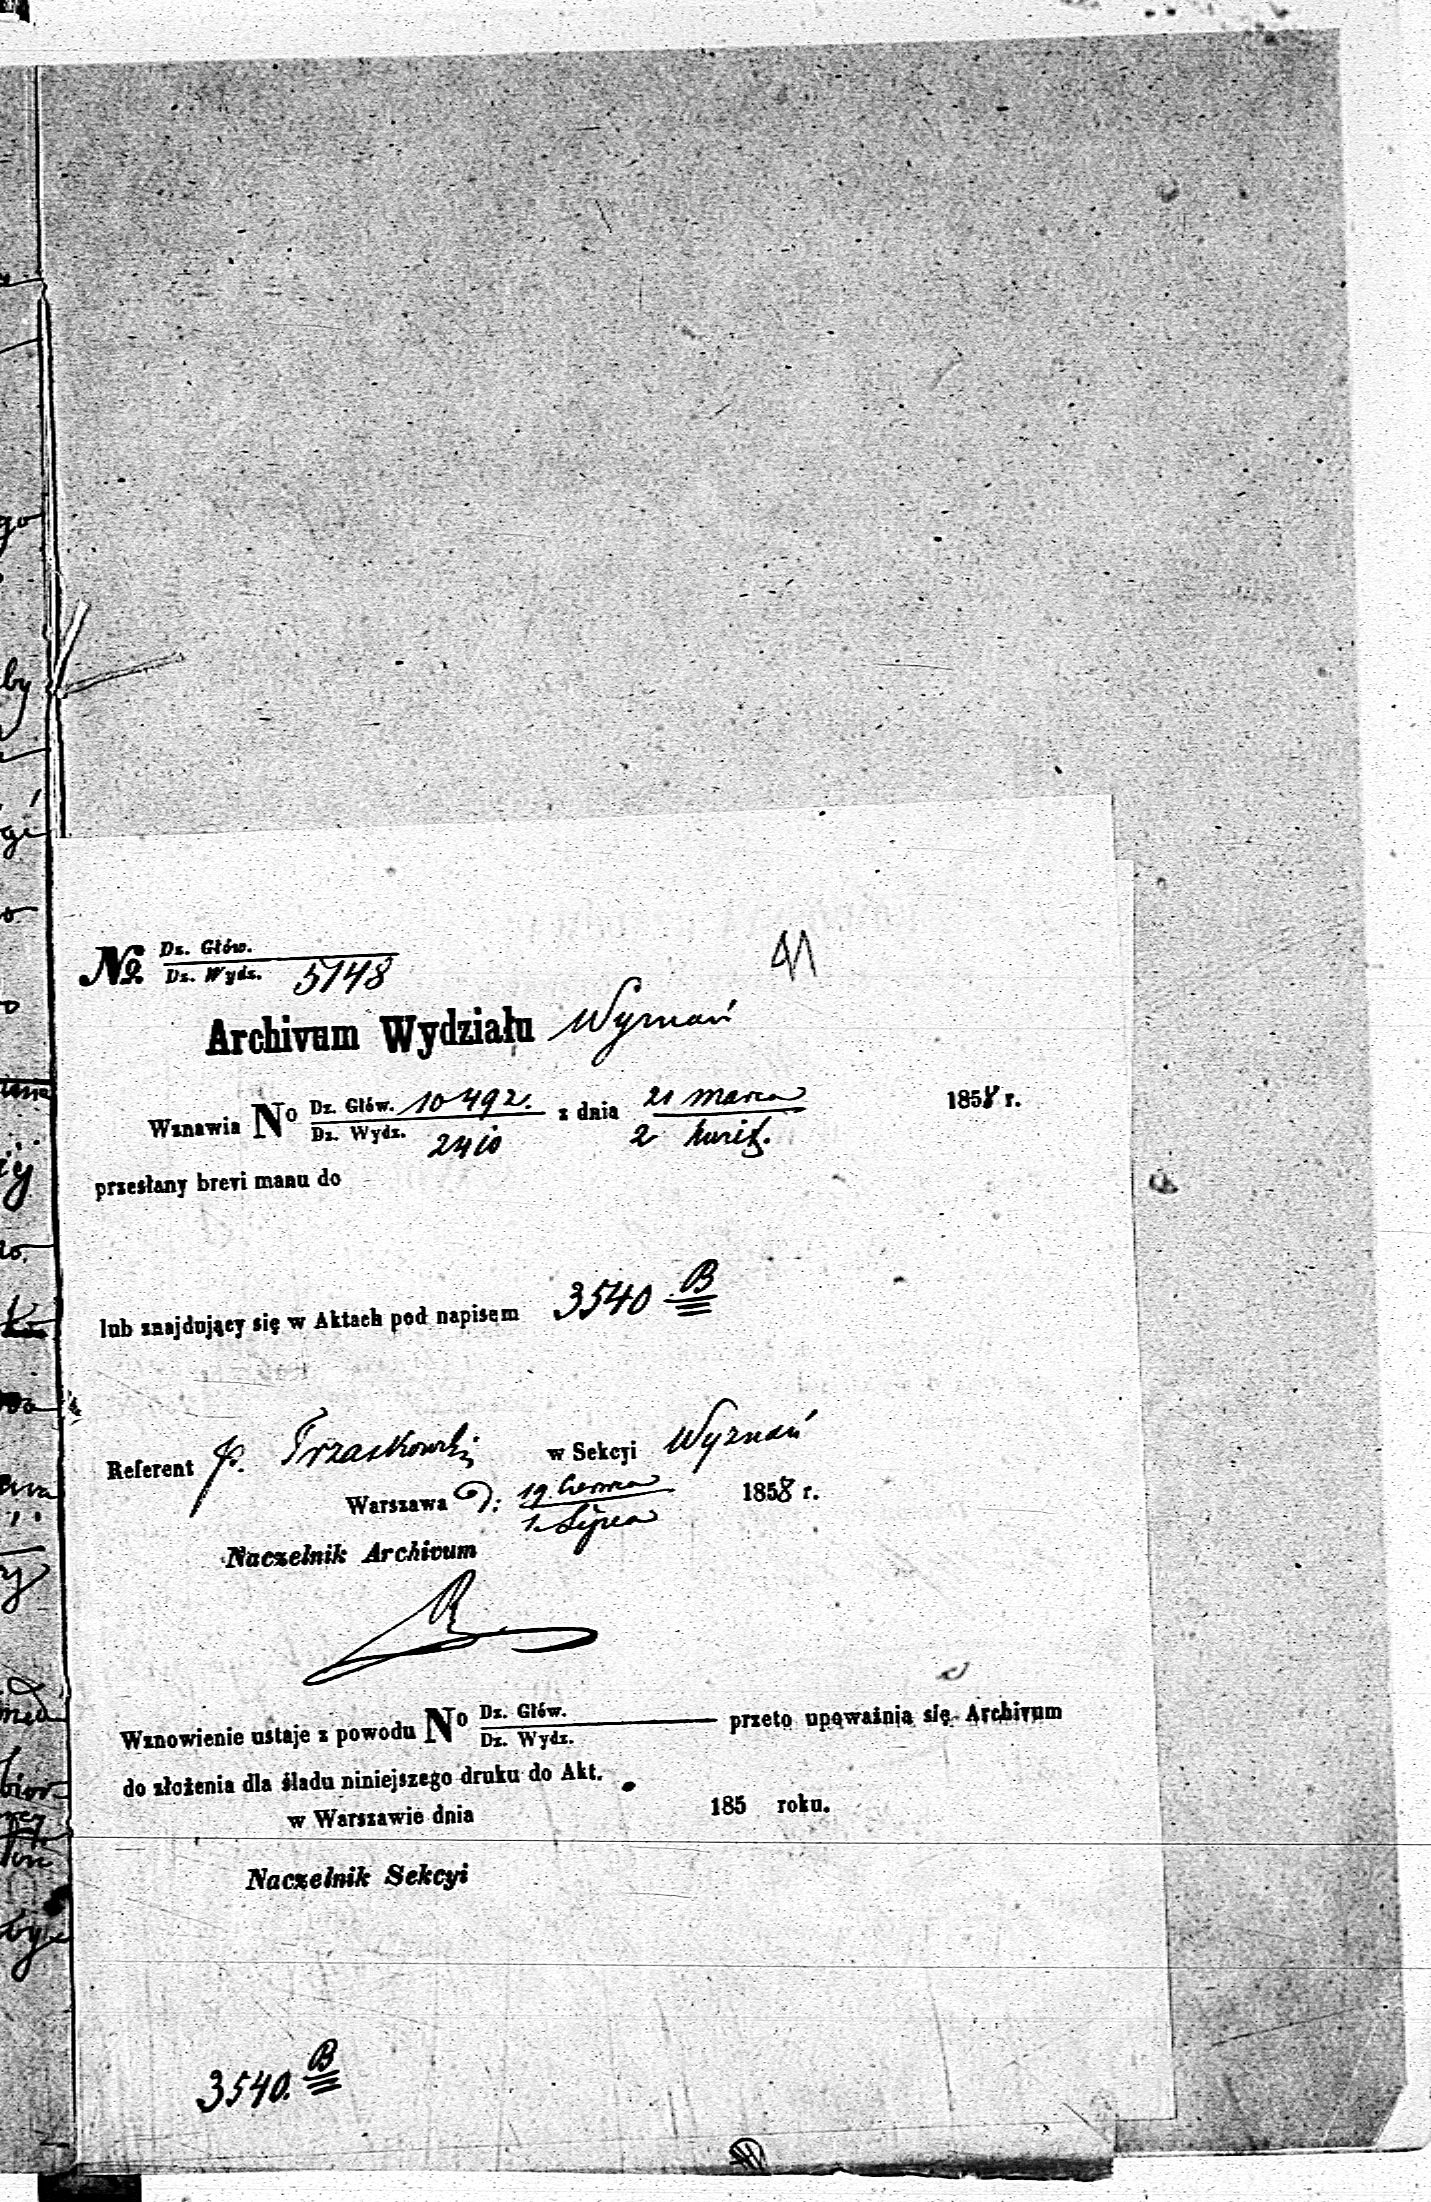 41
№ Dz. Głów.
Dz. Wydz. 5148
Archivum Wydziału Wyznań
Wznawia No Dz. Głów. 10492. z dnia 21 marca 1858 r.
Dz. Wydz. 2410 2 kwiet.
przesłany brevi manu do
lub znajdujący się w Aktach pod napisem 3540 B
Referent P. Trzaskowski w Sekcyi Wyznań
Warszawa d: 19 Czerwca 1858 r.
1. Lipca
Naczelnik Archivum
Wznowienie ustaje z powodu No Dz. Głów. przeto upoważnia się Archivum
Dz. Wydz.
do złożenia dla śladu niniejszego druku do Akt.
w Warszawie dnia 185 roku.
Naczelnik Sekcyi
3540. B